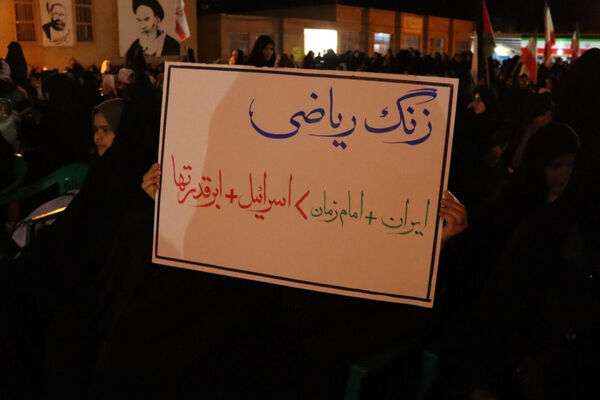 زنگ ریاضی
ایران + امام زمان > اسرائیل + ابرقدرتها